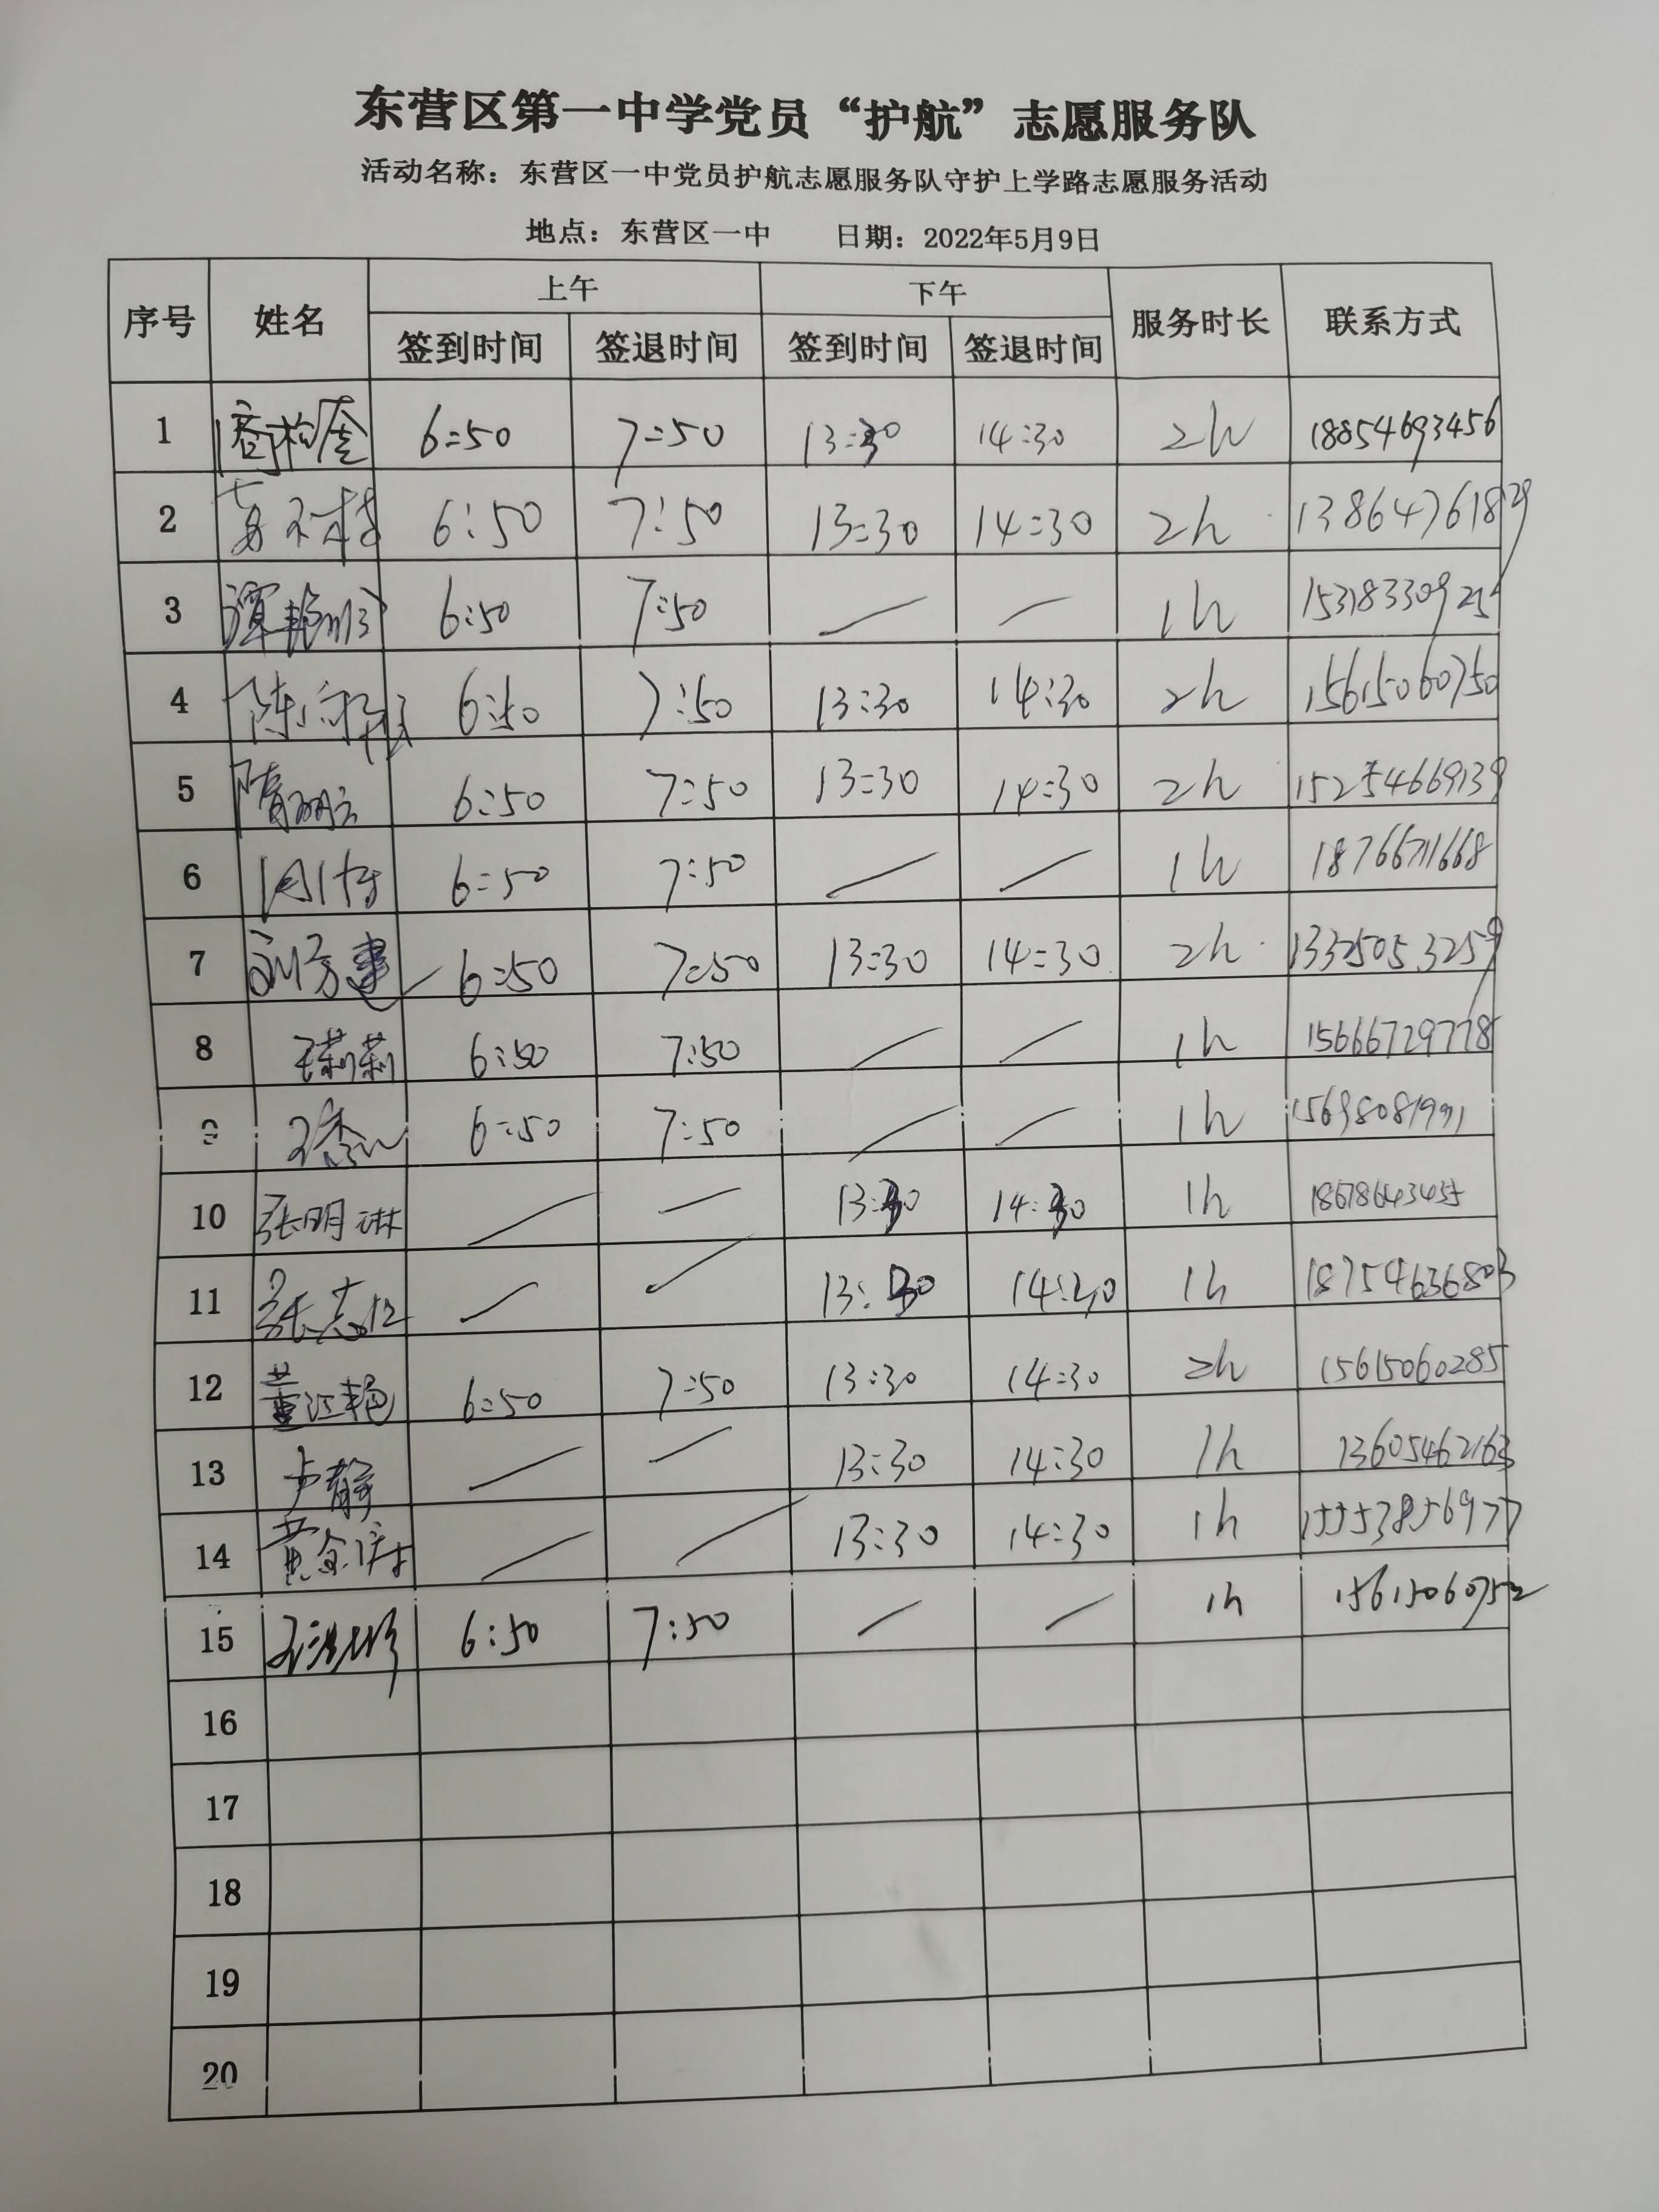 东营区第一中学党员“护航”志愿服务队
活动名称：东营区一中党员护航志愿服务队守护上学路志愿服务活动
地点：东营区一中 日期：2022年5月9日
序号 姓名 上午 下午 服务时长 联系方式
签到时间 签退时间 签到时间 签退时间
1 6:50 7:50 13:30 14:30 2h 18854693456
2 6:50 7:50 13:30 14:30 2h 13864761829
3 6:50 7:50 — — 1h 15318330925
4 6:50 7:50 13:30 14:30 2h 15615060750
5 6:50 7:50 13:30 14:30 2h 15254669139
6 周博 6:50 7:50 — — 1h 18766711668
7 刘方建 6:50 7:50 13:30 14:30 2h 13325053259
8 王莉莉 6:50 7:50 — — 1h 15666729778
9 6:50 7:50 — — 1h 15698081991
10 张明琳 — — 13:30 14:30 1h 18678643455
11 — — 13:30 14:30 1h 18754636803
12 董江艳 6:50 7:50 13:30 14:30 2h 15615060285
13 卢静 — — 13:30 14:30 1h 13605462163
14 — — 13:30 14:30 1h 15553856977
15 6:50 7:50 — — 1h 15615060752
16
17
18
19
20